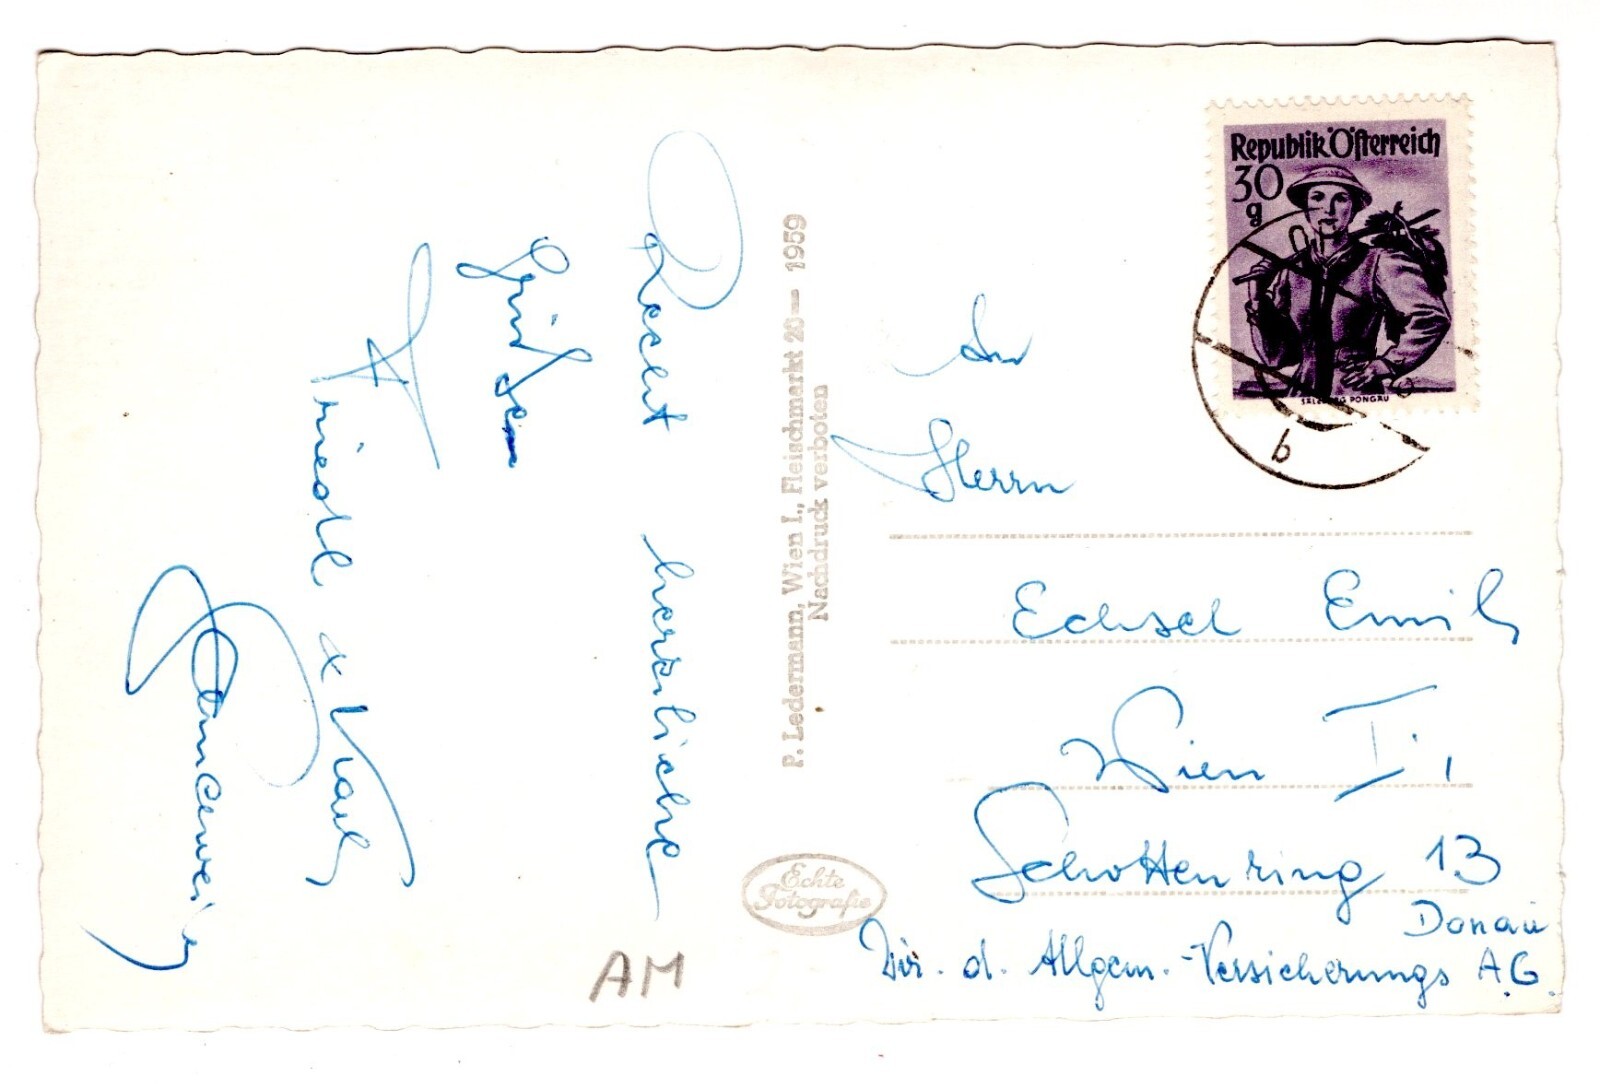 Recht herzliche
Grüße
Friedl & Karl
P. Ledermann, Wien I., Fleischmarkt 20 — 1959
Nachdruck verboten
Echte
Fotografie
AM
Republik Österreich
30
g
SALZBURG PONGAU
b
An
Herrn
Echsel Emil
Wien I,
Schottenring 13
Donau
Dir. d. Allgem.-Versicherungs A.G.